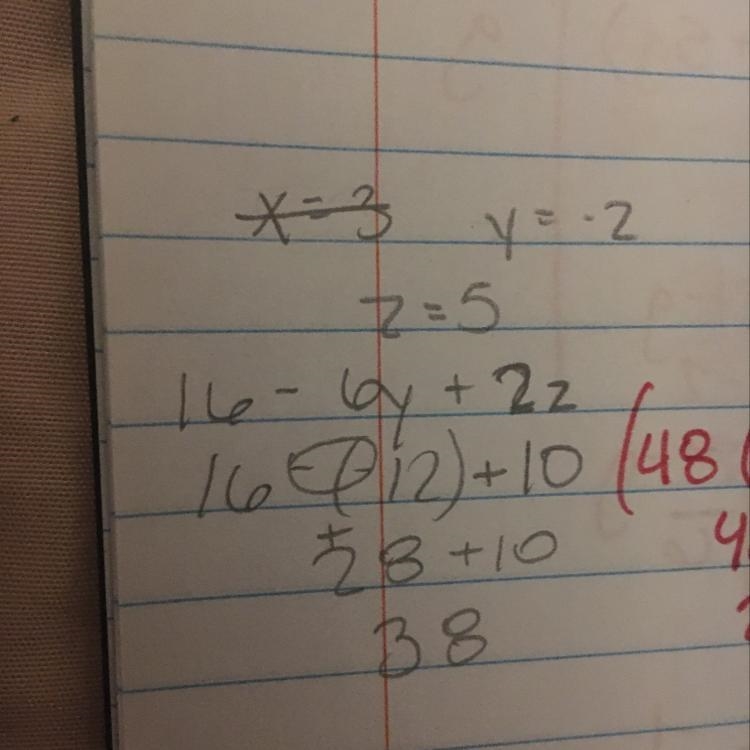 x = 3 y = -2
z = 5
16 - 6y + 2z
16 - (-12) + 10 (48 (
+
28 + 10 4
38